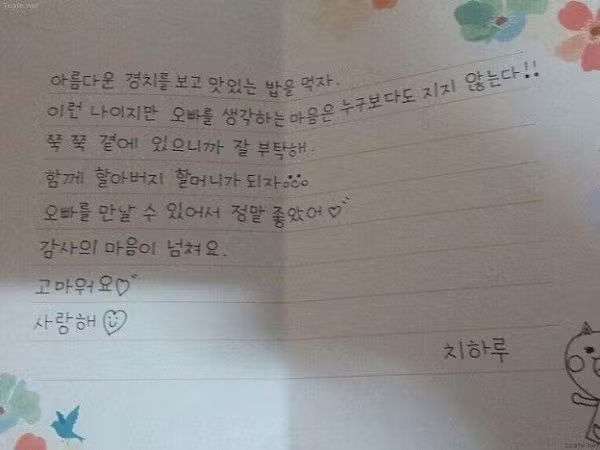 아름다운 경치를 보고 맛있는 밥을 먹자.
이런 나이지만 오빠를 생각하는 마음은 누구보다도 지지 않는다!!
쭉 쭉 곁에 있으니까 잘 부탁해.
함께 할아버지 할머니가 되자
오빠를 만날 수 있어서 정말 좋았어♡
감사의 마음이 넘쳐요.
고마워요♡
사랑해
치하루